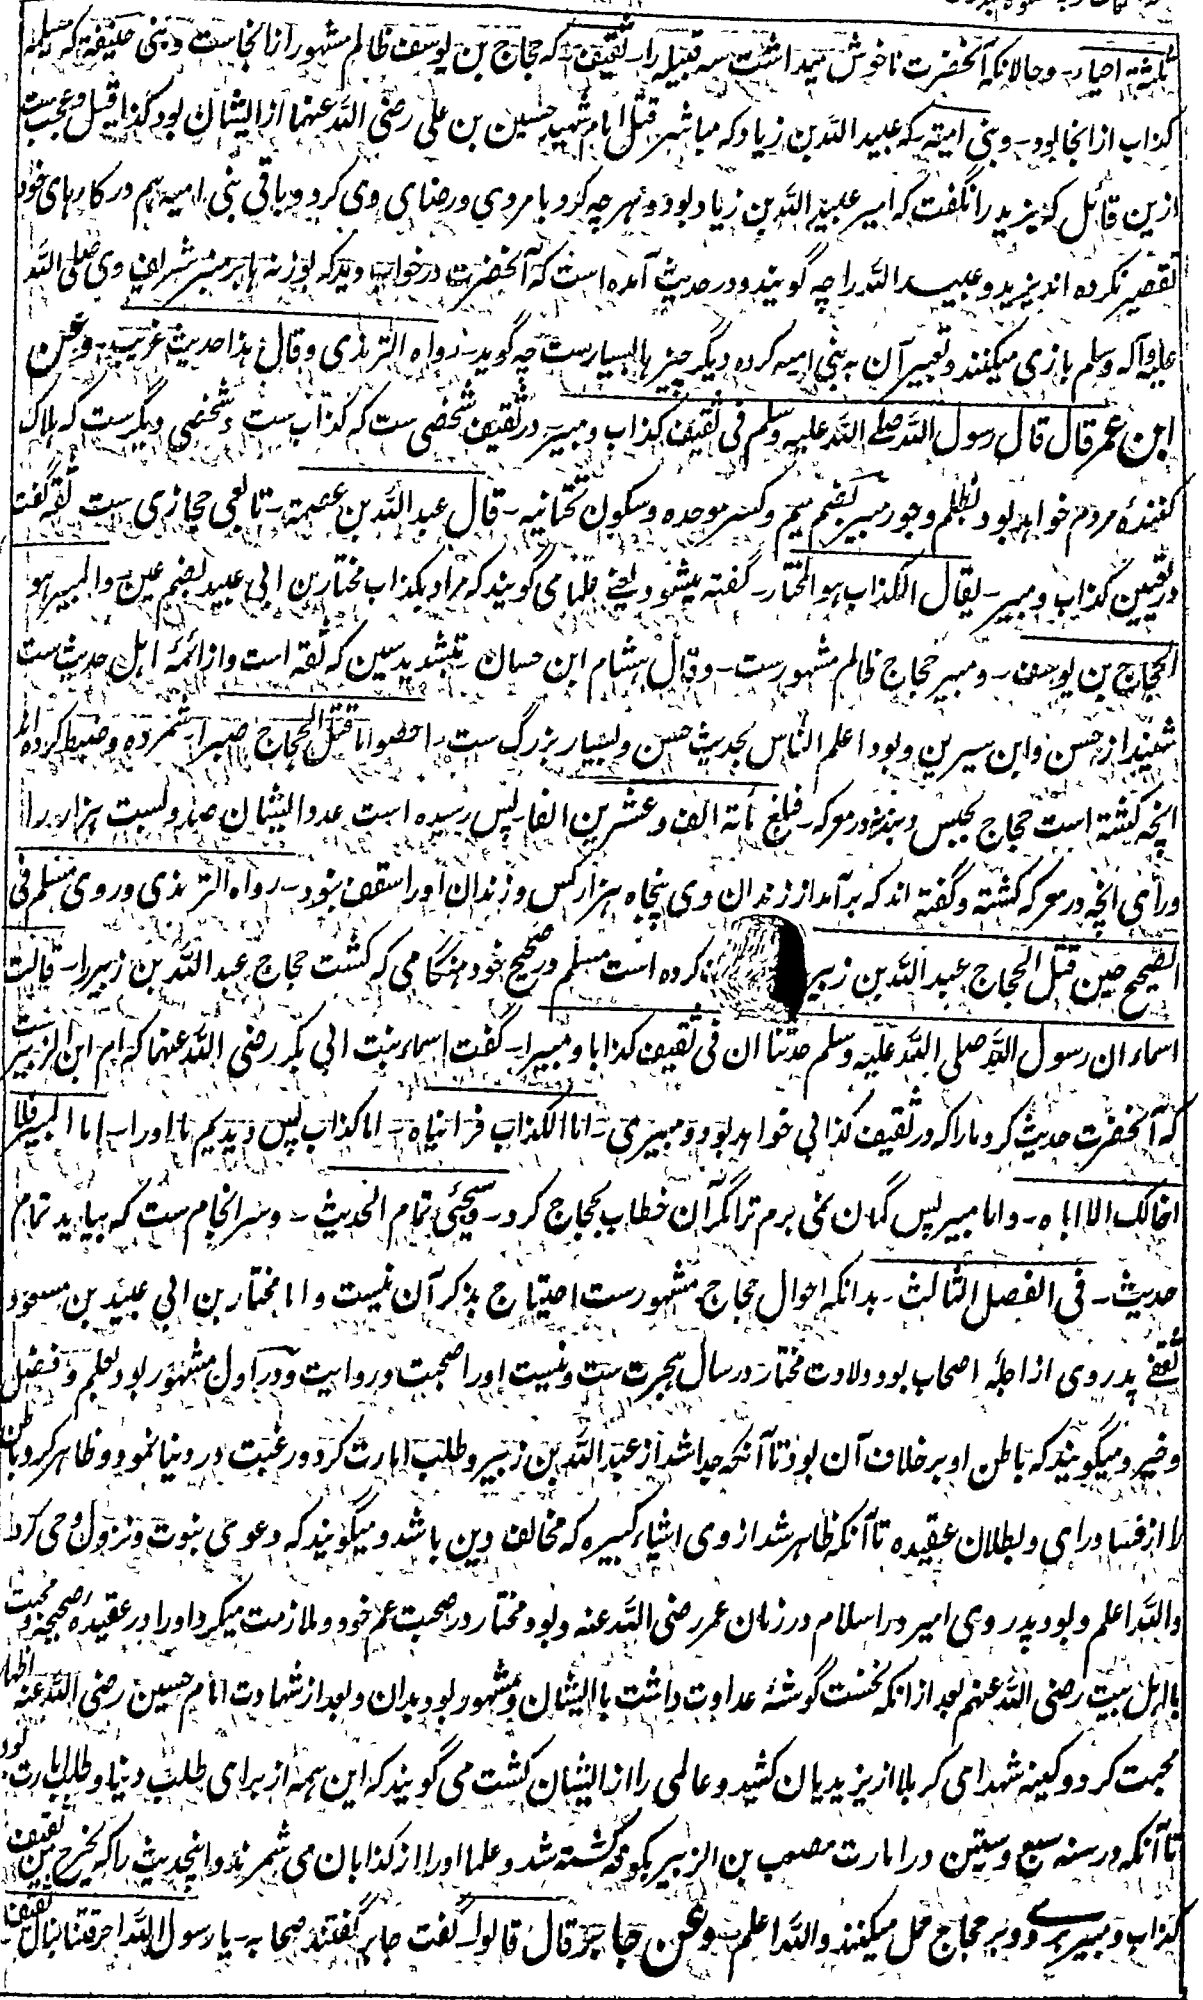 ثلثة احیاء۔ وحالانکه آنحضرت ناخوش میداشت سه قبیله را۔ ثقیف۔ که حجاج بن یوسف ظالم مشهور ازانجاست وبنی حنیفة که مسیلمه
کذاب ازانجا بود۔ وبنی امیة۔ که عبید الله بن زیاد که مباشر قتل امام شهید حسین بن علی رضی الله عنهما از ایشان بود کذا قیل وعجب ست
ازین قائل که یزید را نگفت که امیر عبید الله بن زیاد بود وهرچه کرد بامر وی ورضای وی کرد وباقی بنی امیه هم در کارهای خود
تقصیر نکرده اند یزید وعبید الله را چه گویند ودر حدیث آمده است که آنحضرت در خواب دید که بوزنه ها بر منبر شریف وی صلی الله
علیه وآله وسلم بازی میکنند وتعبیر آن به بنی امیه کرده دیگر چیزها بسیارست چه گوید۔ رواه الترمذی وقال هذا حدیث غریب۔ وعن
ابن عمر قال قال رسول الله صلے الله علیه وسلم فی ثقیف کذاب ومبیر۔ در ثقیف شخصی ست که کذاب ست وشخصی دیگرست که هلاک
کننده مردم خواهد بود بظلم وجور مبیر بضم میم وکسر موحده وسکون تحتانیه۔ قال عبد الله بن عصمة۔ تابعی حجازی ست ثقه گفت
در تعیین کذاب ومبیر۔ یقال الکذاب هو المختار۔ گفته میشود یعنے علما می گویند که مراد بکذاب مختار بن ابی عبید بضم عین۔ والمبیر هو
الحجاج بن یوسف۔ ومبیر حجاج ظالم مشهورست۔ وقال هشام ابن حسان۔ بتشدید سین که ثقه است واز ائمه اهل حدیث ست
شنید از حسن وابن سیرین وبود اعلم الناس بحدیث حسن وبسیار بزرگ ست۔ احصوا ما قتل الحجاج صبرا۔ شمرده وضبط کرده اند
آنچه کشته است حجاج بحبس وبند نه در معرکه۔ فبلغ مائة الف وعشرین الفا۔ پس رسیده است عدد ایشان صد وبست هزار را
ورای آنچه در معرکه کشته وگفته اند که برآمد از زندان وی پنجاه هزار کس وزندان او را سقف نبود۔ رواه الترمذی وروی مسلم فی
الصحیح حین قتل الحجاج عبد الله بن زبیر کرده است مسلم در صحیح خود هنگامی که کشت حجاج عبد الله بن زبیر را۔ قالت
اسماء ان رسول الله صلی الله علیه وسلم حدثنا ان فی ثقیف کذابا ومبیرا۔ گفت اسماء بنت ابی بکر رضی الله عنهما که ام ابن الزبیر ست
که آنحضرت حدیث کرد ما را که در ثقیف کذابی خواهد بود ومبیری۔ اما الکذاب فرایناه۔ اما کذاب پس دیدیم ما او را۔ اما المبیر فلا
اخالک الا ایاه۔ واما مبیر پس گمان نمی برم ترا مگر آن خطاب بحجاج کرد۔ وسیجئی تمام الحدیث۔ وسرانجام ست که بیاید تمام
حدیث۔ فی الفصل الثالث۔ بدانکه احوال حجاج مشهورست احتیاج بذکر آن نیست واما مختار بن ابی عبید بن مسعود
ثقفے پدر وی از اجله اصحاب بود وولادت مختار در سال هجرت ست ونیست او را صحبت وروایت ودر اول مشهور بود بعلم وفضل
وخیر ومیگویند که باطن او بر خلاف آن بود تا آنکه جدا شد از عبد الله بن زبیر وطلب امارت کرد ورغبت در دنیا نمود وظاهر کرد باطن
را از فساد رای وبطلان عقیده تا آنکه ظاهر شد از وی اشیاء کبیره که مخالف دین باشد ومیگویند که دعوی نبوت ونزول وحی کرد
والله اعلم وبود پدر وی امیر در اسلام در زمان عمر رضی الله عنه وبود مختار در صحبت عم خود وملازمت میکرد او را در عقیده صحیحه ومحبت
با اهل بیت رضی الله عنهم بعد ازانکه نخست گوشه عداوت داشت با ایشان ومشهور بود بدان وبعد از شهادت امام حسین رضی الله عنه اظهار
محبت کرد وکینه شهدای کربلا از یزیدیان کشید وعالمی را از ایشان کشت می گویند که این همه از برای طلب دنیا وطلب امارت بود
تا آنکه در سنه سبع وستین در امارت مصعب بن الزبیر بکوفه کشته شد وعلما او را از کذابان می شمرند واین حدیث را که یخرج من ثقیف
کذاب ومبیر بر وے وبر حجاج حمل میکنند والله اعلم۔ وعن جابر قال قالوا۔ گفت جابر گفتند صحابه۔ یا رسول الله احرقتنا نبال ثقیف